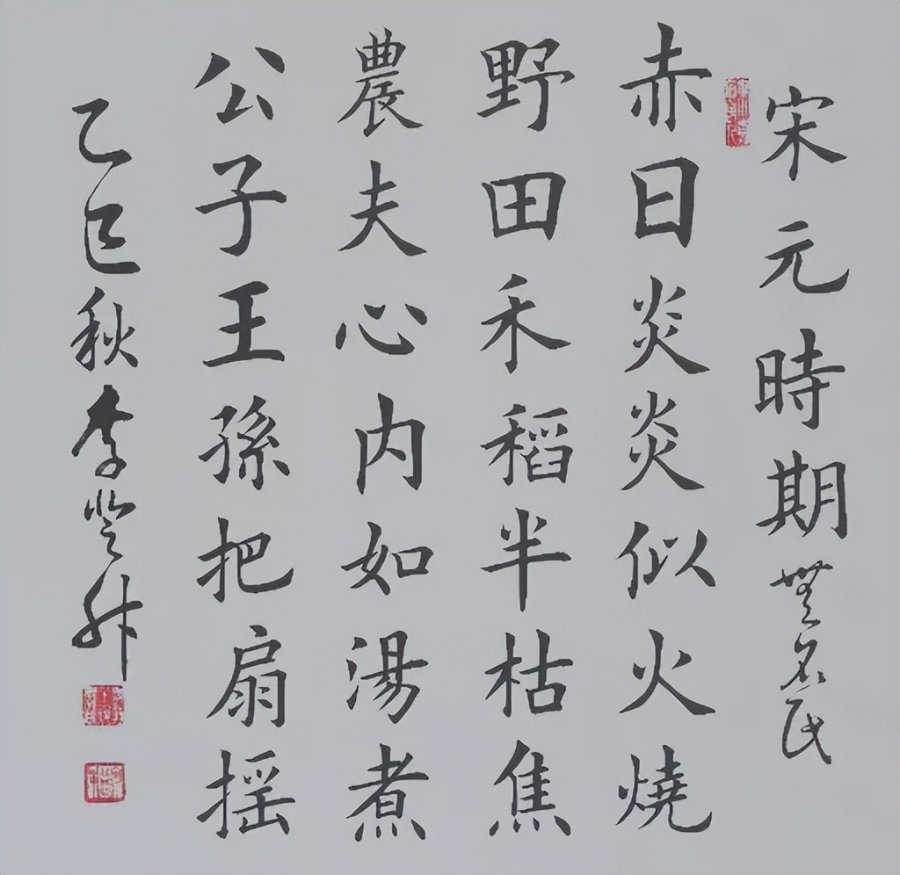 宋元時期無名氏
赤日炎炎似火燒
野田禾稻半枯焦
農夫心内如湯煮
公子王孫把扇摇
乙巳秋李登